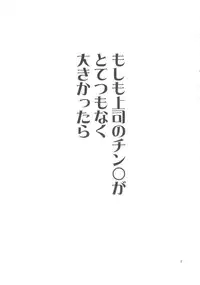 もしも上司のチン○が
とてつもなく
大きかったら